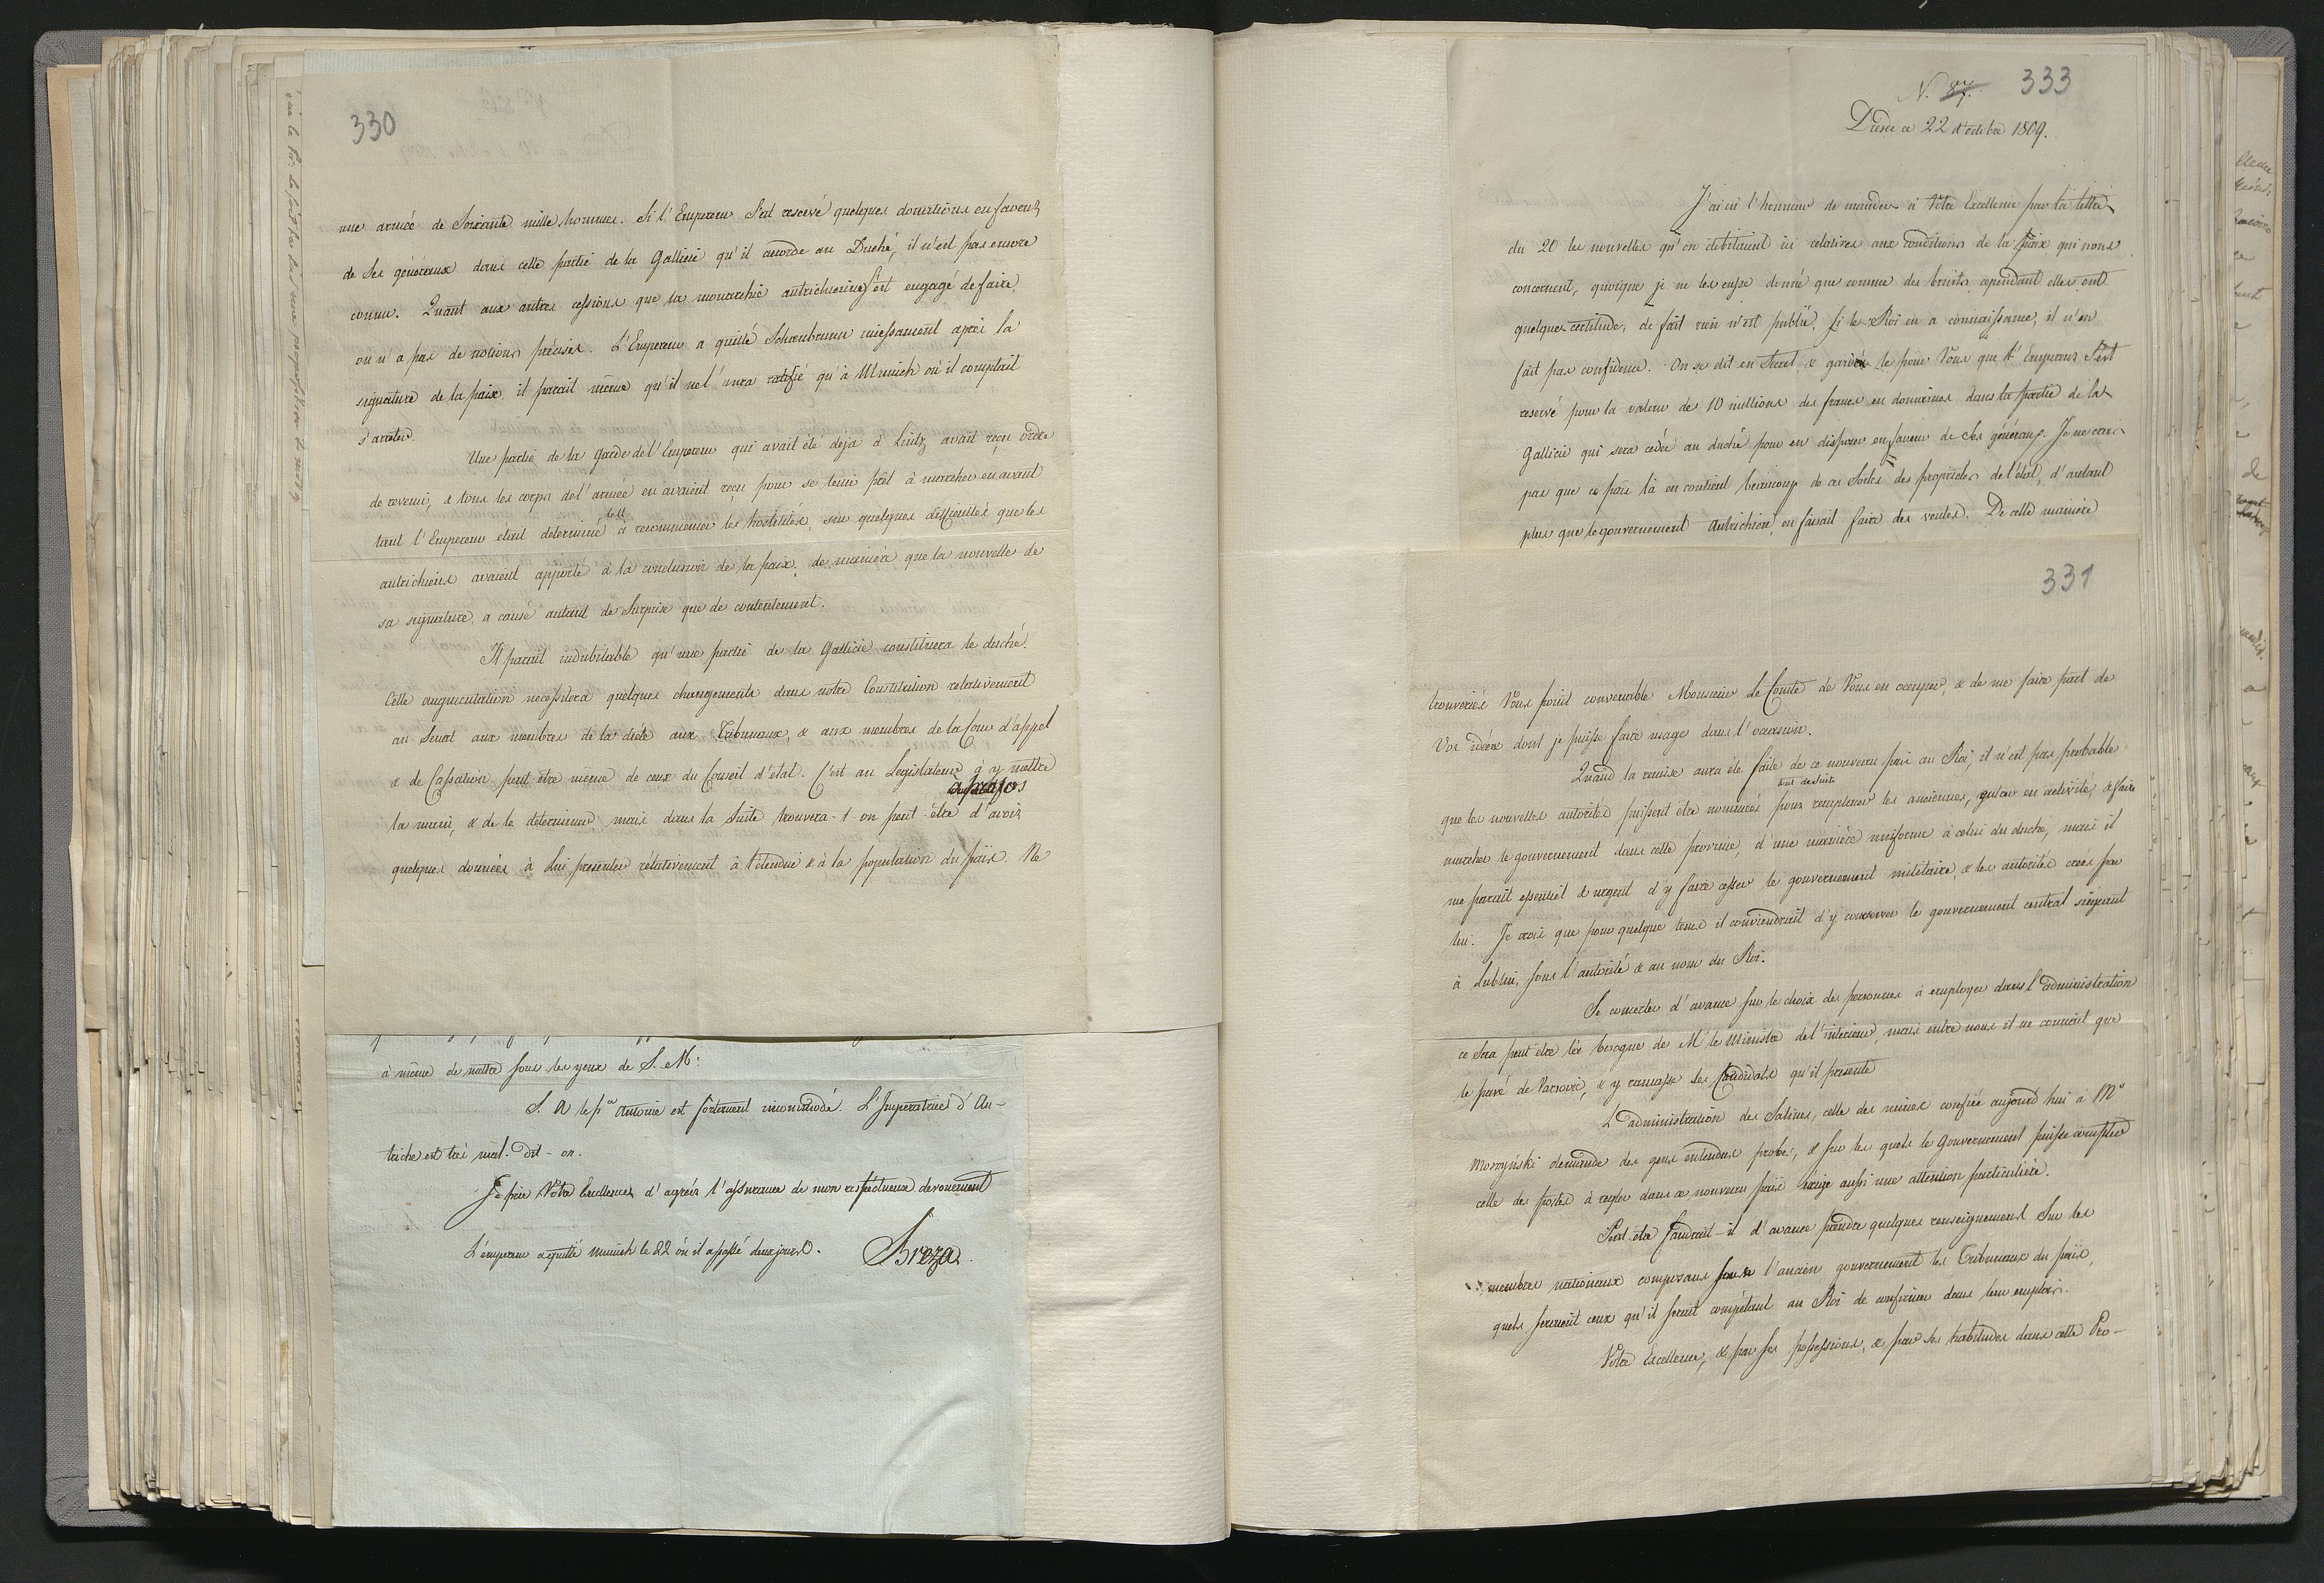 330
une armée de Soixante mille hommes. Si l'Empereur s'est reservé quelques donations en faveur
de Ses généraux dans cette partie de la Gallicie qu'il accorde au Duché, il n'est pas encore
connu. Quant aux autres cessions que la monarchie autrichienne s'est engagé de faire,
on n'a pas de notions précises. L'Empereur a quitté Schoenbrunn incessament après la
signature de la paix, il parait même qu'il ne l'aura ratifié qu'à Munich où il comptait
s'arreter.
Une partie de la Garde de l'Empereur qui avait été deja à Lintz avait reçu ordre
de revenir, & tous les corps de l'armée en avaient reçu pour se tenir prêt à marcher en avant
tant l'Empereur etait determiné à recommencer les hostilités, sur quelques difficultés que les
autrichiens avaient apporté à la conclusion de la paix, de manière que la nouvelle de
sa signature, a causé autant de Surprise que de contentement.
Il parait indubitable qu'une partie de la Gallicie constituera le duché.
Cette augmentation necessitera quelques changements dans notre Constitution relativement
au Senat aux membres de la diète aux Tribunaux, & aux membres de la Cour d'appel
& de Cassation peut être même de ceux du Conseil d'état. C'est au Legislateur à y mettre
à propos
la main, & de le determiner, mais dans la Suite trouvera-t-on peut-être d'avoir
quelques données à Lui presenter rélativement à l'étendüe & à la population du païs. Ne
à même de mettre sous les yeux de S. M:
S. A le pce Antoine est fortement incommodé. L'Imperatrice d'Au-
triche est très mal. dit-on.
Je prie Votre Excellence d'agréer l'assurance de mon respectueux devouement
L'empereur a quitté Munich le 22 où il a passé deux jours.
Breza.
N. 87. 333
Dresde ce 22 d'octobre 1809.
J'ai eû l'honneur de mander à Votre Excellence par la lettre
du 20 les nouvelles qu'on debitaient ici relatives aux conditions de la paix qui nous
concernent, quoique je ne les eusse donné que comme des bruits, cependant elles ont
quelque certitude, de fait rien n'est publié, si le Roi en a connaissance, il n'en
fait pas confidence. On se dit en Secret, & gardés le pour Vous que l'Empereur s'est
reservé pour la valeur de 10 millions des francs en domaines dans la partie de la
Gallicie qui sera cedée au duché pour en disposer en faveur de Ses généraux. Je ne crois
pas que ce païs là en contient beaucoup de ces sortes des proprietés de l'état, d'autant
plus que le gouvernement Autrichien, en faisait faire des ventes. De cette manière
331
trouveriés Vous point convenable Monsieur le Comte de Vous en occuper, & de me faire part de
Vos idées dont je puisse faire usage dans l'occasion.
Quand la remise aura été faite de ce nouveau païs au Roi, il n'est pas probable
tout de suite
que les nouvelles autorités puissent être nommées pour remplacer les anciennes, en activité, & faire
marcher le gouvernement dans cette province, d'une manière uniforme à celui du duché, mais il
me parait essentiel & urgent d'y faire cesser le gouvernement militaire, & les autorités créés par
lui. Je crois que pour quelque tems il conviendrait d'y conserver le gouvernement central siégeant
à Lublin, sous l'autorité & au nom du Roi.
Se concerter d'avance sur le choix des personnes à employer dans l'administration
ce sera peut être la besogne de Mr le Ministre de l'interieur, mais entre nous il ne connait que
le pavé de Varsovie, & y ramasse les Candidats qu'il presente
L'administration des Salines, celle des mines confiée aujourd'hui à Mr
Moszyński demande des gens entendus probes, & sur les quels le Gouvernement puisse compter
celle des postes à regler dans ce nouveau païs exige aussi une attention particulière.
Peut-être faudrait-il d'avance prendre quelques renseignement Sur les
membres nationaux composans sous l'ancien gouvernement les Tribunaux du païs,
quels seraient ceux qu'il serait compétant au Roi de confirmer dans leur emplois.
Votre Excellence, & par ses possessions, & par ses habitudes dans cette Pro-